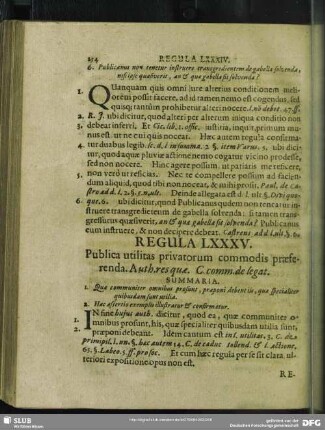 214 REGULA LXXXIV.
6. Publicanus non tenetur instruere transgredientem de gabella solvenda,
nisi ipse quæsiverit, an & quæ gabella sit solvenda?
1. QUanquam quis omni jure alterius conditionem meli-
orem possit facere, ad id tamen nemo est cogendus,
quisq; tantùm prohibetur alteri nocere. 47. ff.
2. R. J. ubi dicitur, quod alteri per alterum iniqua conditio non
3. debeat inferri, Et Cic. lib. 1. offic. justitiæ, inquit, primum mu-
nus est, ut ne cui quis noceat. Hæc autem regula confirma-
4. tur duabus legib. sc. d. l in summa. 2 §. item Varus. 5. ubi dici-
tur, quod aquæ pluviæ actione nemo cogatur vicino prodesse,
sed non nocere. Hac agere possum, ut patiaris me reficere,
5. non verò ut reficias. Nec te compellere possum ad facien-
dum aliquid, quod tibi non noceat, & mihi prosit. Paul. de Ca-
Deinde allegata est d. l
6. que. 6. ubi dicitur, quod Publicanus quidem non teneatur in-
struere transgredientem de gabella solvenda: si tamen trans-
gressurus quæsiverit, an & quæ gabella sit solvenda? Publicanus
eum instruere, & non decipere debeat.
REGULA LXXXV.
Publica utilitas privatorum commodis præfe-
renda. Auth. res quæ. C. comm. de legat.
SUMMARIA.
1. Quæ communiter omnibus prosunt, præponi debent iis, quæ specialiter
quibusdam sunt utilia.
2. Hæc assertio exemplis illustratur & confirmatur.
1. IN fine hujus auth. dicitur, quod ea, quæ communiter o-
mnibus prosunt, his, quæ specialiter quibusdam utilia sunt,
2. præponi debeant. Idem cautum est
primipil. l. un. §. hæc autem 14. C. de caduc. tollend. & l. actione,
65. §. Labeo. 5. ff. pro soc. Et cùm hæc regula per se sit clara, ul-
teriori expositioni opus non est.
RE-
SLUB
Wir führen Wissen.
gefördert von der
Deutschen Forschungsgemeinschaft
DFG